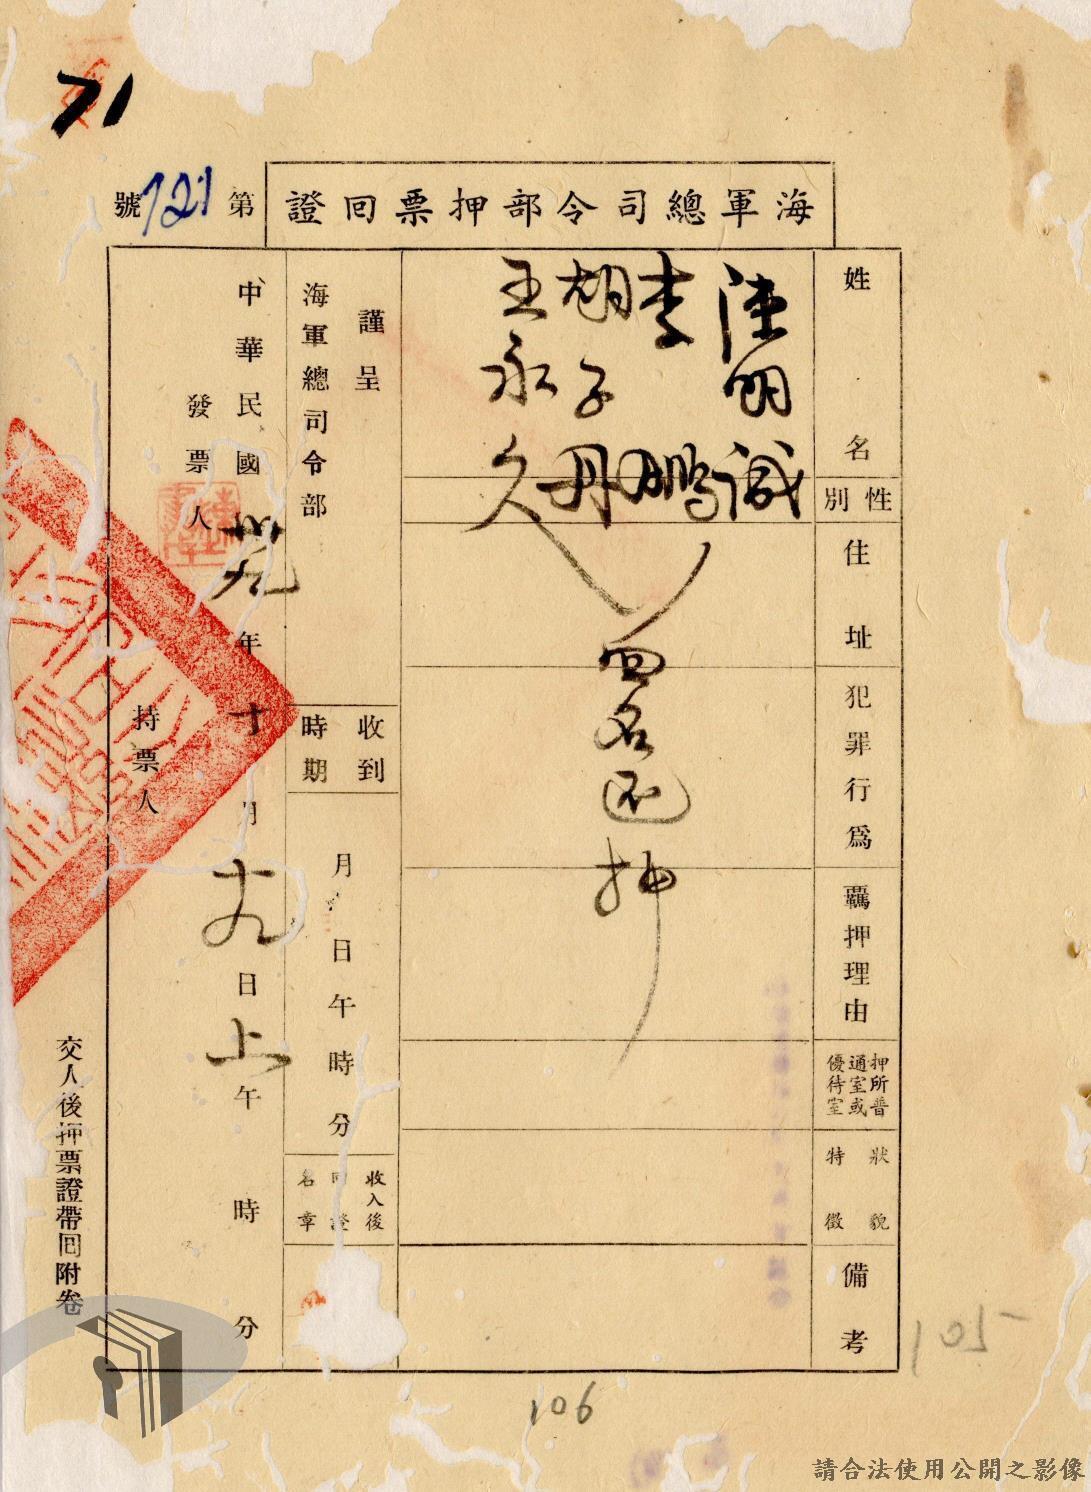 71
海軍總司令部押票回證
第721號
姓名
性別
住址
犯罪行爲
羈押理由
押所普通室或優待室
狀貌特徵
備考
陳明誠
李鵬
胡子丹
王永久
四名還押
謹呈
海軍總司令部
收到時期
月日午時分
收入後回證名章
中華民國卅九年十月十九日上午時分
發票人
持票人
交人後押票證帶回附卷
105
106
請合法使用公開之影像